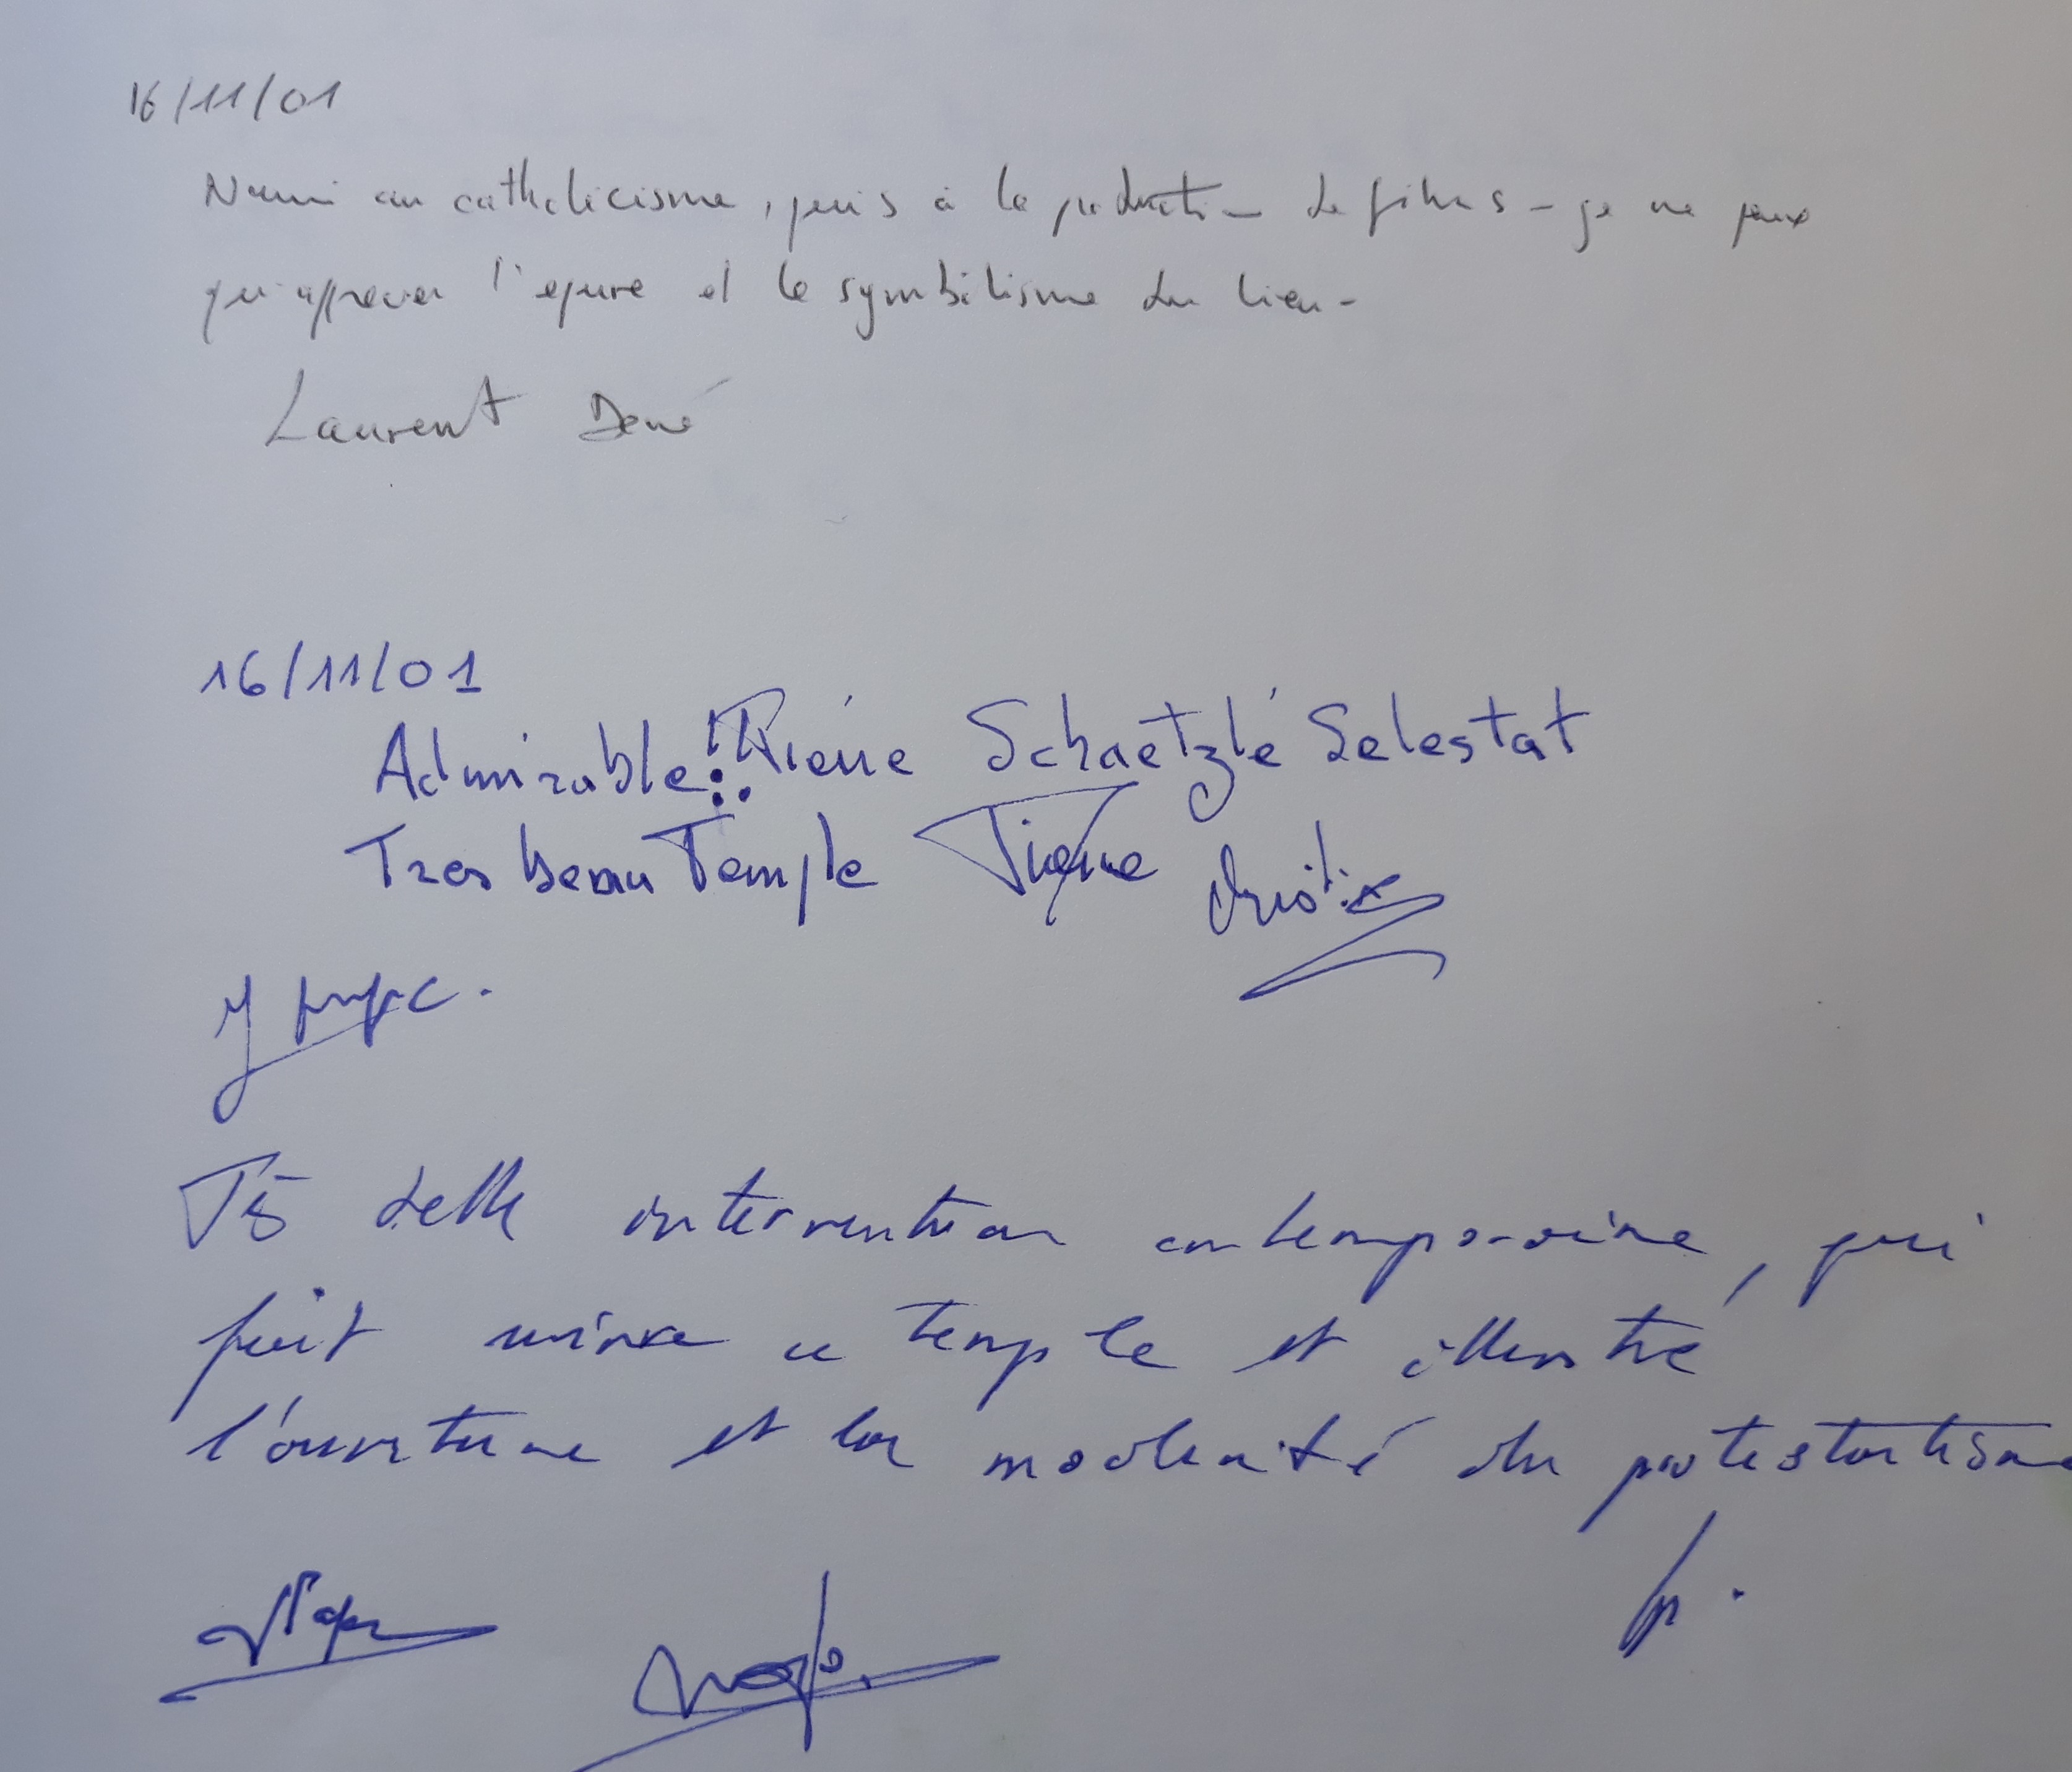 16/11/01
Nourri au catholicisme, puis à la production de films - je ne peux
qu'approuver l'epure et le symbolisme du lieu -
Laurent
16/11/01
Admirable!! Pierre Schaetzlé Selestat
Tres beau Temple Pierre
Ts belle intervention contemporaine, qui
fait vivre ce temple et illustre
l'ouverture et la modernité du protestantisme